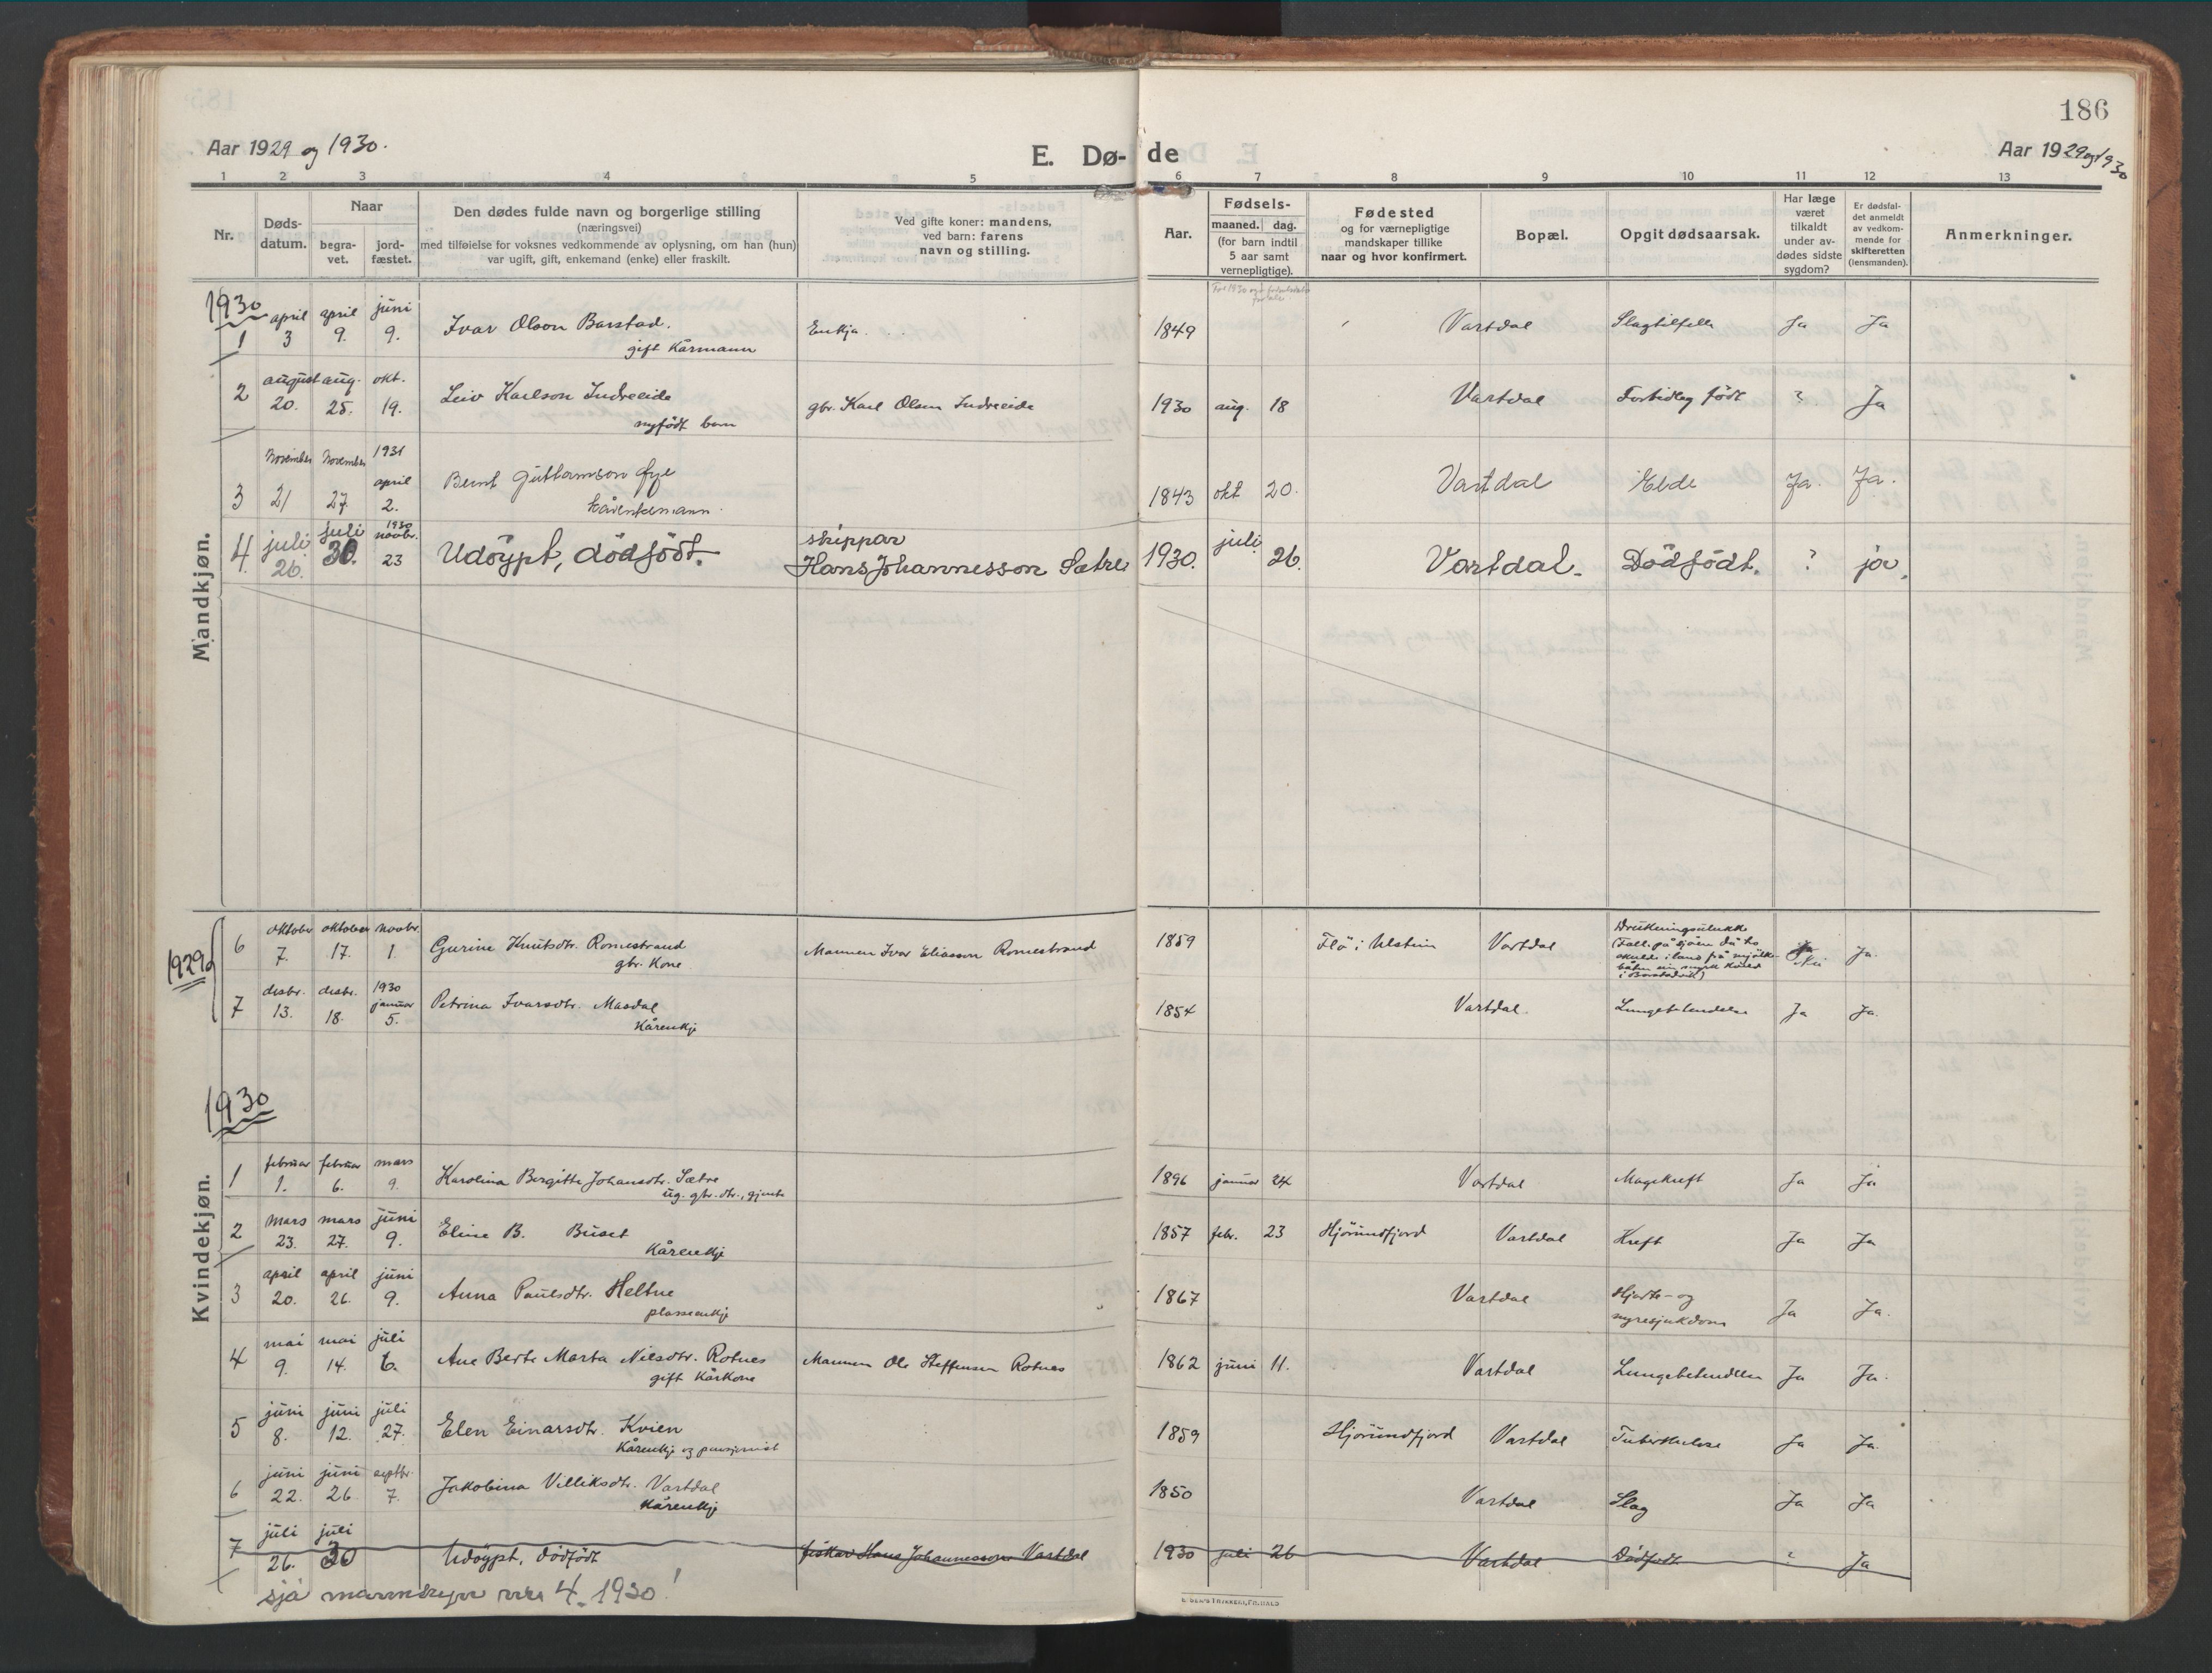 186
Aar 1929 og 1930.
E. Dø- de
Aar 1929 og 1930
1 2 3 4 5 6 7 8 9 10 11 12 13
Nr.
Døds-
datum.
Naar
begra-
vet.
jord-
fæstet.
Den dødes fulde navn og borgerlige stilling
(næringsvei)
med tilføielse for voksnes vedkommende av oplysning, om han (hun)
var ugift, gift, enkemand (enke) eller fraskilt.
Ved gifte koner: mandens,
ved barn: farens
navn og stilling.
Aar.
Fødsels-
maaned. dag.
(for barn indtil
5 aar samt
vernepligtige).
Fødested
og for værnepligtige
mandskaper tillike
naar og hvor konfirmert.
Bopæl.
Opgit dødsaarsak.
Har læge
været
tilkaldt
under av-
dødes sidste
sygdom?
Er dødsfal-
det anmeldt
av vedkom-
mende for
skifteretten
(lensmanden).
Anmerkninger.
Mandkjøn.
1930
april april juni
1 3 9. 9. Ivar Olson Barstad. Enkja. 1849 Vartdal Slagtilfelle Ja Ja
gift Kårmann
august aug. okt.
2 20. 25. 19. Leiv Karlson Indreeide gbr. Karl Olsen Indreeide 1930 aug. 18 Vartdal født ? Ja
nyfødt barn
November November 1931
april
3 21 27. 2. Bernt Guttormson Øye 1843 okt 20. Vartdal Elde Ja. Ja.
kårenkemann
juli juli 1930 novbr.
4. 26. 30. 23 Udöypt, dödfödt. skippar
Hans Johannesson Sætre 1930. juli 26. Vartdal. Dödfödt. ? ja.
Kvindekjøn.
1929
oktober oktober novbr.
6 7. 17. 1. Gurine Knutsdtr. Romestrand Mannen Ivar Eliasson Romestrand 1859 Flø i Ulstein Vartdal Drukningsulukke
(Fall. på sjøen då ho
skulde i land frå mjølke-
båten
gbr. Kone Nei Ja.
desbr. desbr. 1930
januar
7 13. 18. 5. Petrina Ivarsdtr. Masdal 1854 Vartdal. Lungebetendelse Ja Ja.
Kårenkje
1930
februar februar mars
1 1. 6. 9. Karolina Birgitte Johansdtr. Sætre 1896 januar 24 Vartdal Magekreft Ja Ja
ug. gbr. dtr., gjente
mars mars juni
2 23. 27. 9. Eline B. Buset 1857 febr. 23 Hjørundfjord Vartdal Kreft Ja Ja
Kårenkje
april april juni
3 20. 26. 9. Anna Paulsdtr. Heltne 1867 Vartdal Hjarte- og
nyresjukdom Ja Ja.
plassenkje
mai mai juli
4 9. 14. 6. Ane Berte Marta Nilsdtr. Rotnes Mannen Ole Steffensen Rotnes 1862 juni 11. Vartdal Lungebetendelse Ja Ja.
gift Kårkone
juni juni juli
5 8. 12. 27. Elen Einarsdtr. Kvien 1859 Hjørundfjord Vartdal Tuberkulose Ja Ja.
Kårenkje og pensjonist
juni juni septbr.
6 22. 26 7. Jakobina Villiksdtr. Vartdal 1850 Vartdal Slag Ja Ja
Kårenkje
juli juli
7 26. 30 Udöypt, dödfödt fiskar Hans Johannesson Vartdal 1930 juli 26 Vartdal Dødfødt ? Ja
sjå mannkjøn nr. 4. 1930!